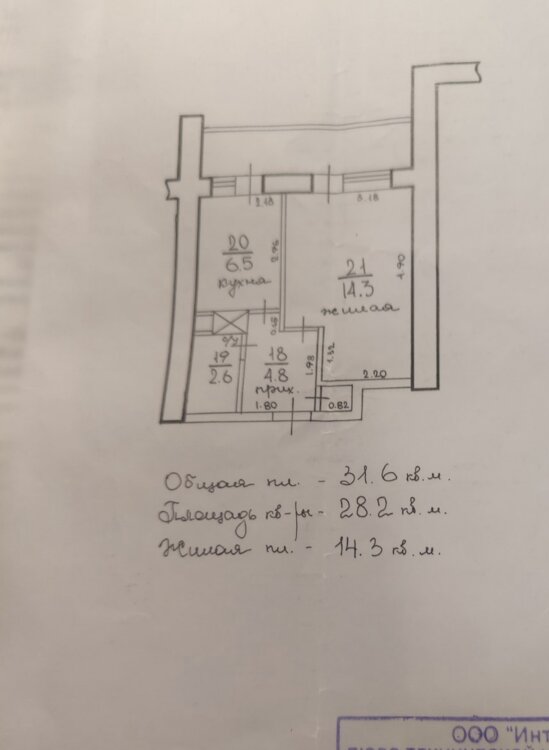 2.18
3.18
20
6.5
кухня
2.96
21
14.3
жилая
4.90
0.48
19
2.6
18
4.8
прих.
1.98
1.32
2.20
1.80
0.82
Общая пл. - 31.6 кв.м.
Площадь кв-ры - 28.2 кв.м.
Жилая пл. - 14.3 кв.м.
ООО "Инт